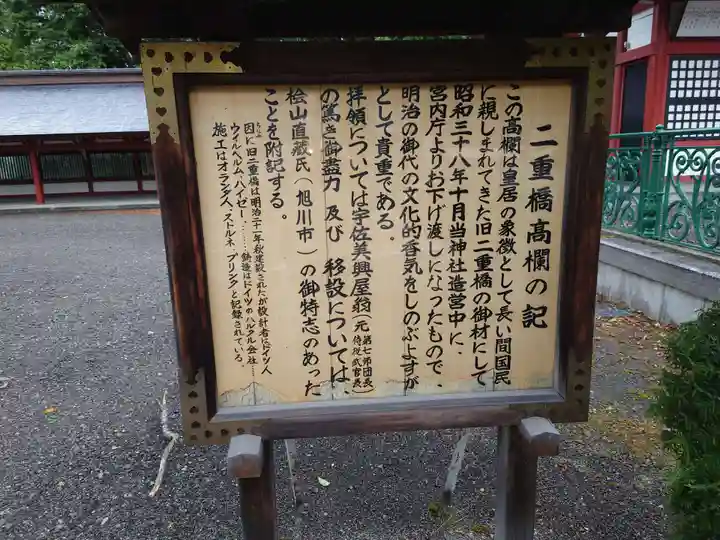 二重橋高欄の記
この高欄は皇居の象徴として長い間国民
に親しまれてきた旧二重橋の御材にして
昭和三十八年十月当神社造営中に、
宮内庁よりお下げ渡しになったもので、
明治の御代の文化的香気をしのぶよすが
として貴重である。
拝領については宇佐美興屋翁(元第七師団長侍従武官長)
の篤き御盡力 及び 移設については、
桧山直蔵氏(旭川市)の御特志のあった
ことを附記する。
因に旧二重橋は明治二十一年秋建設されたが設計者はドイツ人
ウィルヘルム、ハイゼー、……鋳造はドイツのハルクル会社……
施工はオランダ人、ストルネ、ブリンクと記録されている。